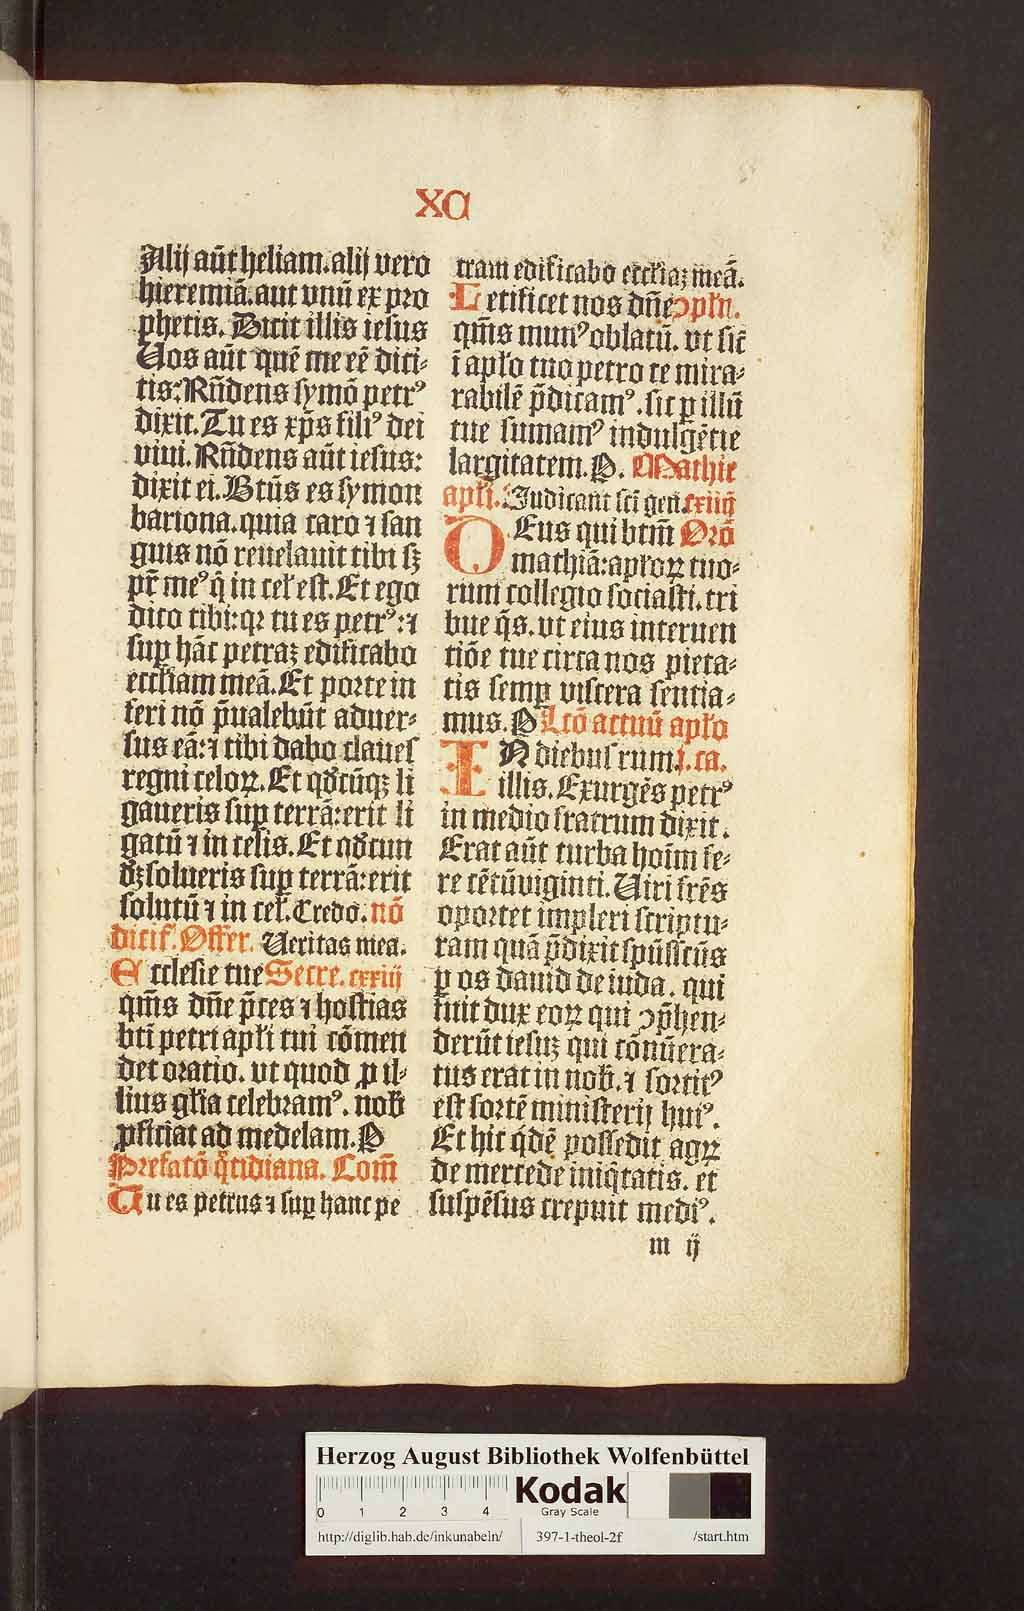 XC
Alij aūt heliam.alij vero
hieremiā.aut vnū ex pro
phetis. Dicit illis iesus
Uos aūt quē me eē dici-
tis: Rn̄dens symō petrꝰ
dixit. Tu es xp̄s filiꝰ dei
viui. Rn̄dens aūt iesus:
dixit ei. Bt̄us es symon
bariona.quia caro ⁊ san
guis nō reuelauit tibi sꝫ
pr̄ meꝰ q̄ in cel̄ est. Et ego
dico tibi:qꝛ tu es petrꝰ:⁊
suꝑ hāc petraꝫ edificabo
eccl̄iam meā. Et porte in
feri nō p̄ualebūt aduer-
sus eā:⁊ tibi dabo claues
regni celoꝝ. Et qd̄cūqꝫ li
gaueris suꝑ terrā:erit li
gatū ⁊ in celis. Et qd̄cun
qꝫ solueris suꝑ terrā:erit
solutū ⁊ in cel̄. Credo. nō
dicit̄. Offer. Ueritas mea.
Ecclesie tue Secre. cxxiij
qm̄s dn̄e p̄ces ⁊ hostias
bt̄i petri apl̄i tui cōmen
det oratio. vt quod ꝓ il-
lius gl̄ia celebramꝰ. nob̄
ꝓficiat ad medelam. P
Prefatō q̄tidiana. Com̄
Tu es petrus ⁊ suꝑ hanc pe
tram edificabo eccl̄iaꝫ meā.
Letificet nos dn̄e ꝯpl̄n.
qm̄s munꝰ oblatū. vt sic̄
ī apl̄o tuo petro te mira-
rabilē p̄dicamꝰ. sic ꝑ illū
tue sumamꝰ indulgētie
largitatem. P. Mathie
apl̄i. Judicant sc̄i gen̄. cxiiij
DEus qui btm̄ Orō
mathiā:apl̄oꝝ tuo-
rum collegio sociasti. tri
bue q̄s. vt eius interuen
tiōe tue circa nos pieta-
tis semꝑ viscera sentia-
mus. P Lcō actuū apl̄o
IN diebus rum. j. ca.
illis. Exurgēs petrꝰ
in medio fratrum dixit.
Erat aūt turba hoīm fe-
re cētūviginti. Uiri frēs
oportet impleri scriptu-
ram quā p̄dixit spūssc̄us
ꝑ os dauid de iuda. qui
fuit dux eoꝝ qui ꝯp̄hen-
derūt iesuꝫ qui cōnūera-
tus erat in nob̄. ⁊ sortitꝰ
est sortē ministerij huiꝰ.
Et hic q̇dē possedit agꝝ
de mercede iniq̇tatis. et
suspēsus crepuit mediꝰ.
m ij
Herzog August Bibliothek Wolfenbüttel
0 1 2 3 4
Kodak
Gray Scale
http://diglib.hab.de/inkunabeln/ 397-1-theol-2f /start.htm